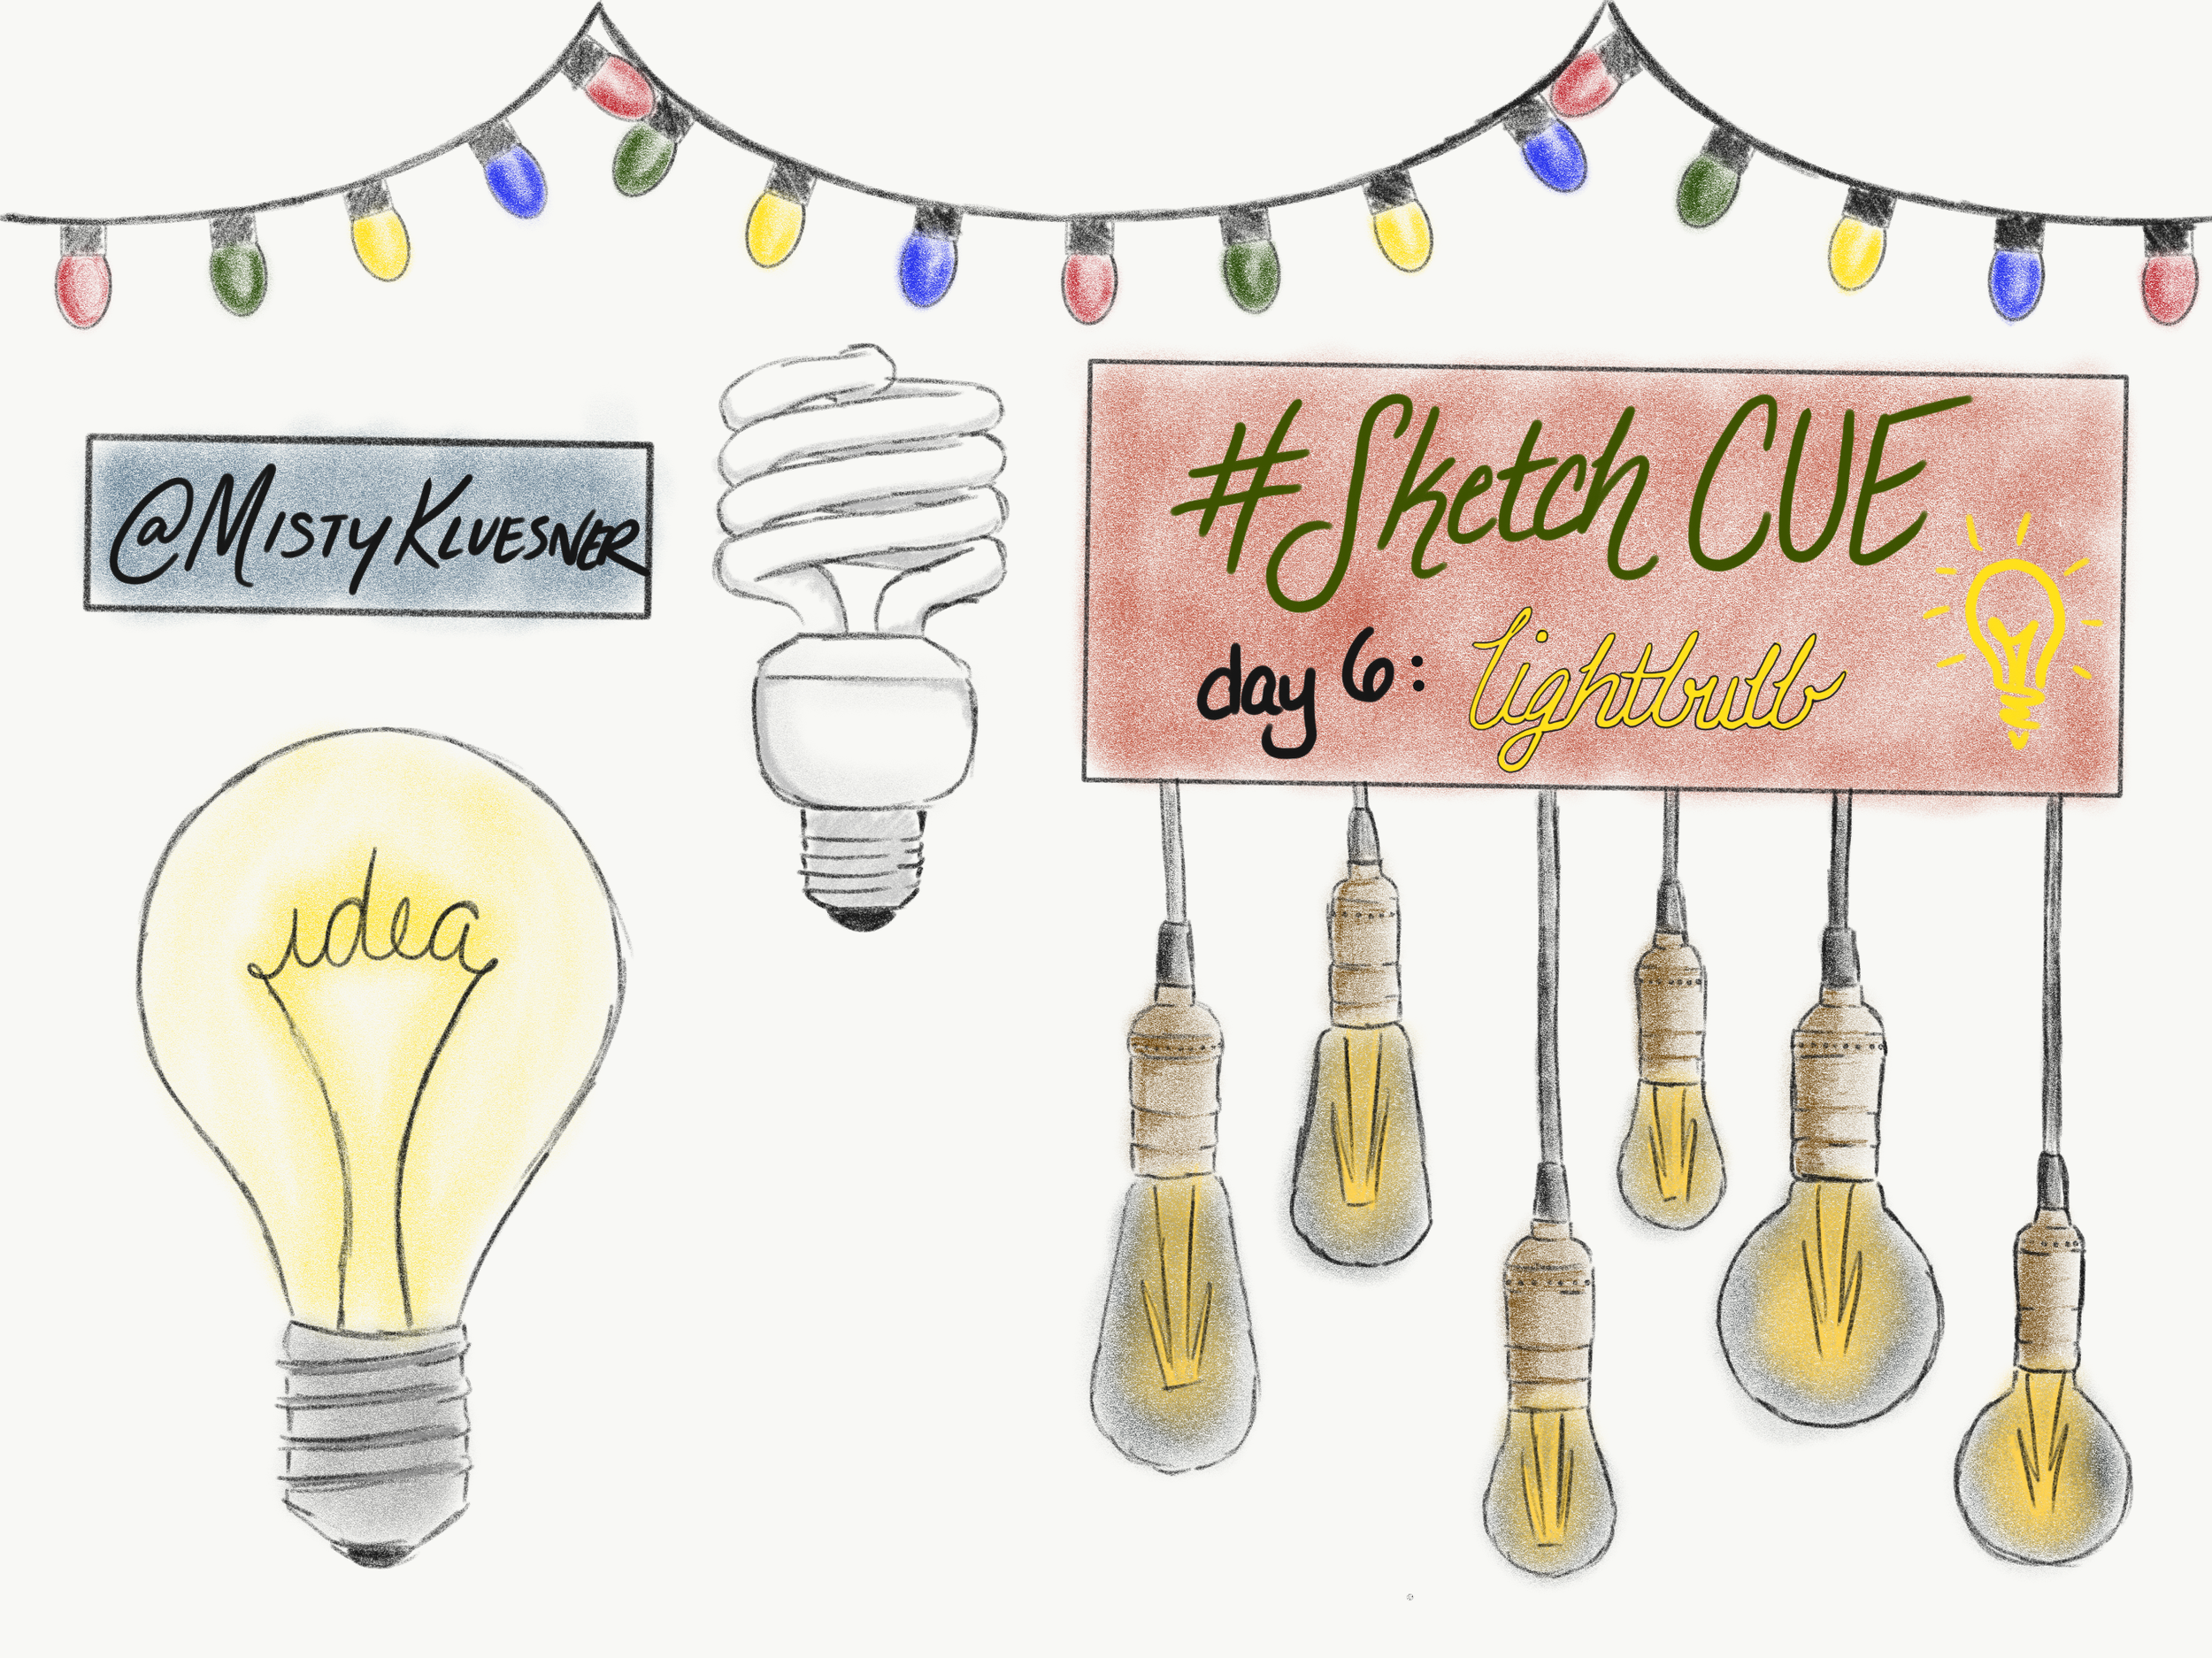 @MistyKluesner
#Sketch CUE
day 6: lightbulb
idea